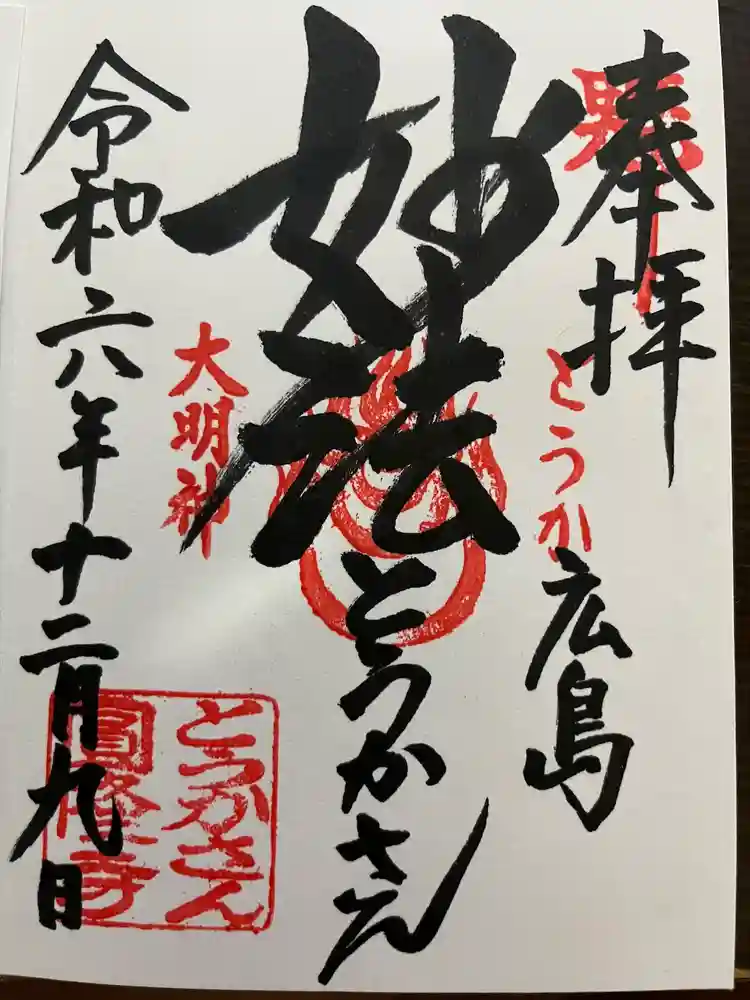 奉拝
広島
とうか
妙法
とうかさん
大明神
令和六年十二月九日
とうかさん
圓隆寺